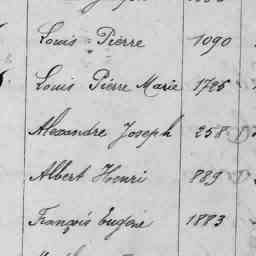 Louis Pierre 1090
Louis Pierre Marie 1725
Alexandre Joseph 258
Albert Henri 889
François Eugène 1883